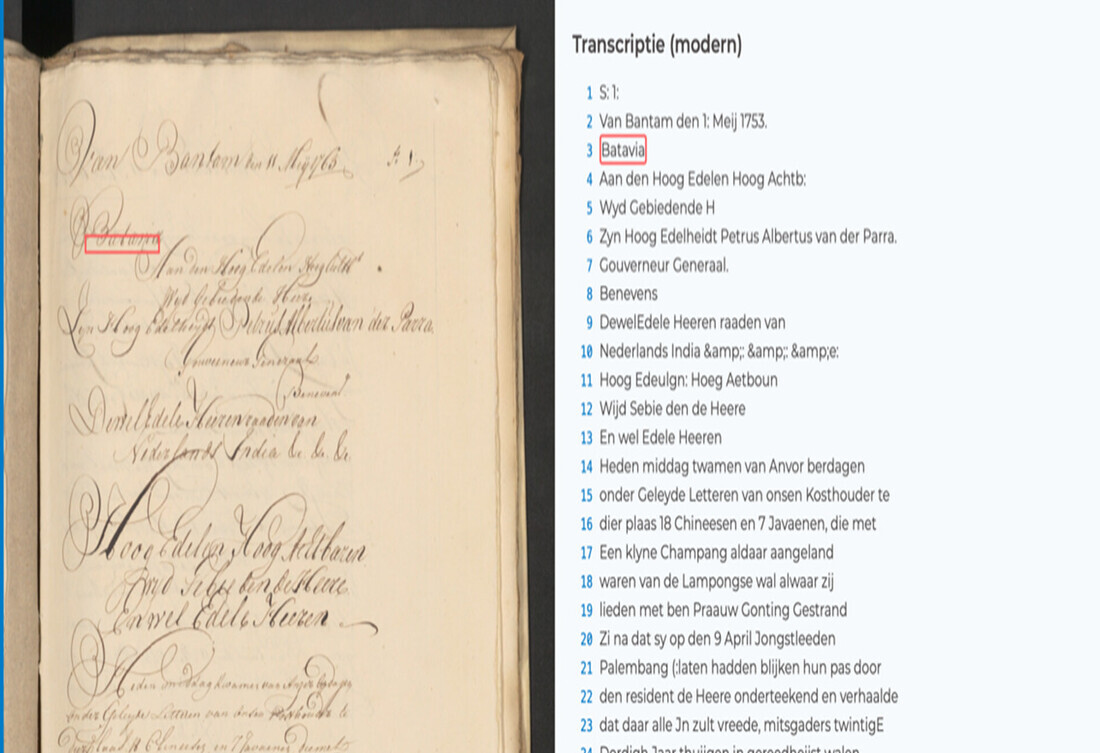 Van Bantam den 11 Meij 1763. S: 1.
Batavia
Aan den Hoog Edelen
Wyd Gebiedende Heere
Hoog Edelheijt Petrus Albertus van der Parra
Gouverneur Generaal
Benevens
De wel Edele Heeren raaden van
Nederlands India &c. &c. &c.
Hoog Edelen Hoog Achtbaren
Wyd Gebiedende Heere
En wel Edele Heeren
Heden middag kwamen van
onder Geleyde Letteren van onsen Posthouder te
18 Chineesen en 7 Javaenen
Transcriptie (modern)
1 S: 1:
2 Van Bantam den 1: Meij 1753.
3 Batavia
4 Aan den Hoog Edelen Hoog Achtb:
5 Wyd Gebiedende H
6 Zyn Hoog Edelheidt Petrus Albertus van der Parra.
7 Gouverneur Generaal.
8 Benevens
9 DewelEdele Heeren raaden van
10 Nederlands India &amp;: &amp;: &amp;e:
11 Hoog Edeulgn: Hoeg Aetboun
12 Wijd Sebie den de Heere
13 En wel Edele Heeren
14 Heden middag twamen van Anvor berdagen
15 onder Geleyde Letteren van onsen Kosthouder te
16 dier plaas 18 Chineesen en 7 Javaenen, die met
17 Een klyne Champang aldaar aangeland
18 waren van de Lampongse wal alwaar zij
19 lieden met ben Praauw Gonting Gestrand
20 Zi na dat sy op den 9 April Jongstleeden
21 Palembang (:laten hadden blijken hun pas door
22 den resident de Heere onderteekend en verhaalde
23 dat daar alle Jn zult vreede, mitsgaders twintigE